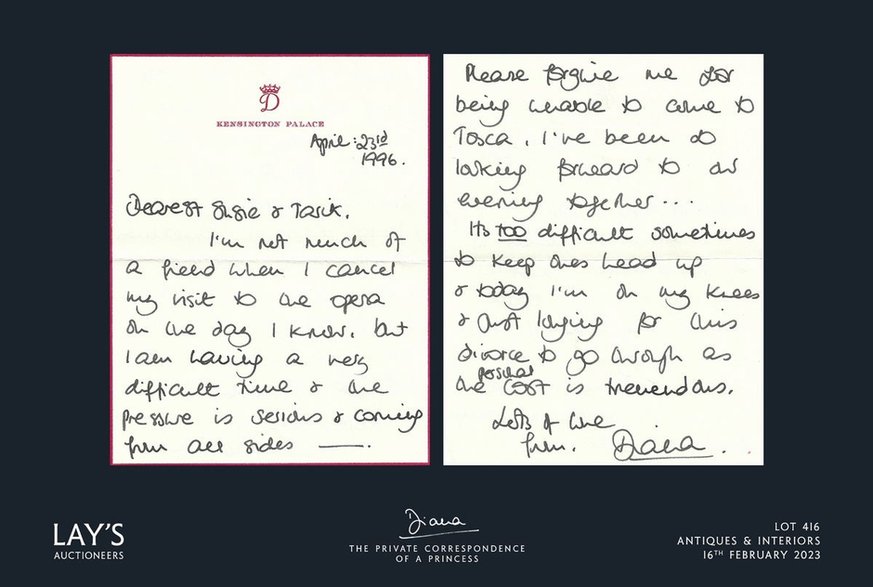 D
KENSINGTON PALACE
April: 23rd
1996.
Dearest Susie & Tarik.
I'm not much of
a friend when I cancel
my visit to the opera
on the day I know, but
I am having a very
difficult time & the
pressure is serious & coming
from all sides —.
Please forgive me for
being unable to come to
Tosca. I've been so
looking forward to our
evening together...
Its too difficult sometimes
to keep ones head up
& today I'm on my knees
& just longing for this
divorce to go through as
the possible cost is tremendous.
Lots of love
from. Diana.
LAY'S
AUCTIONEERS
Diana
THE PRIVATE CORRESPONDENCE
OF A PRINCESS
LOT 416
ANTIQUES & INTERIORS
16TH FEBRUARY 2023